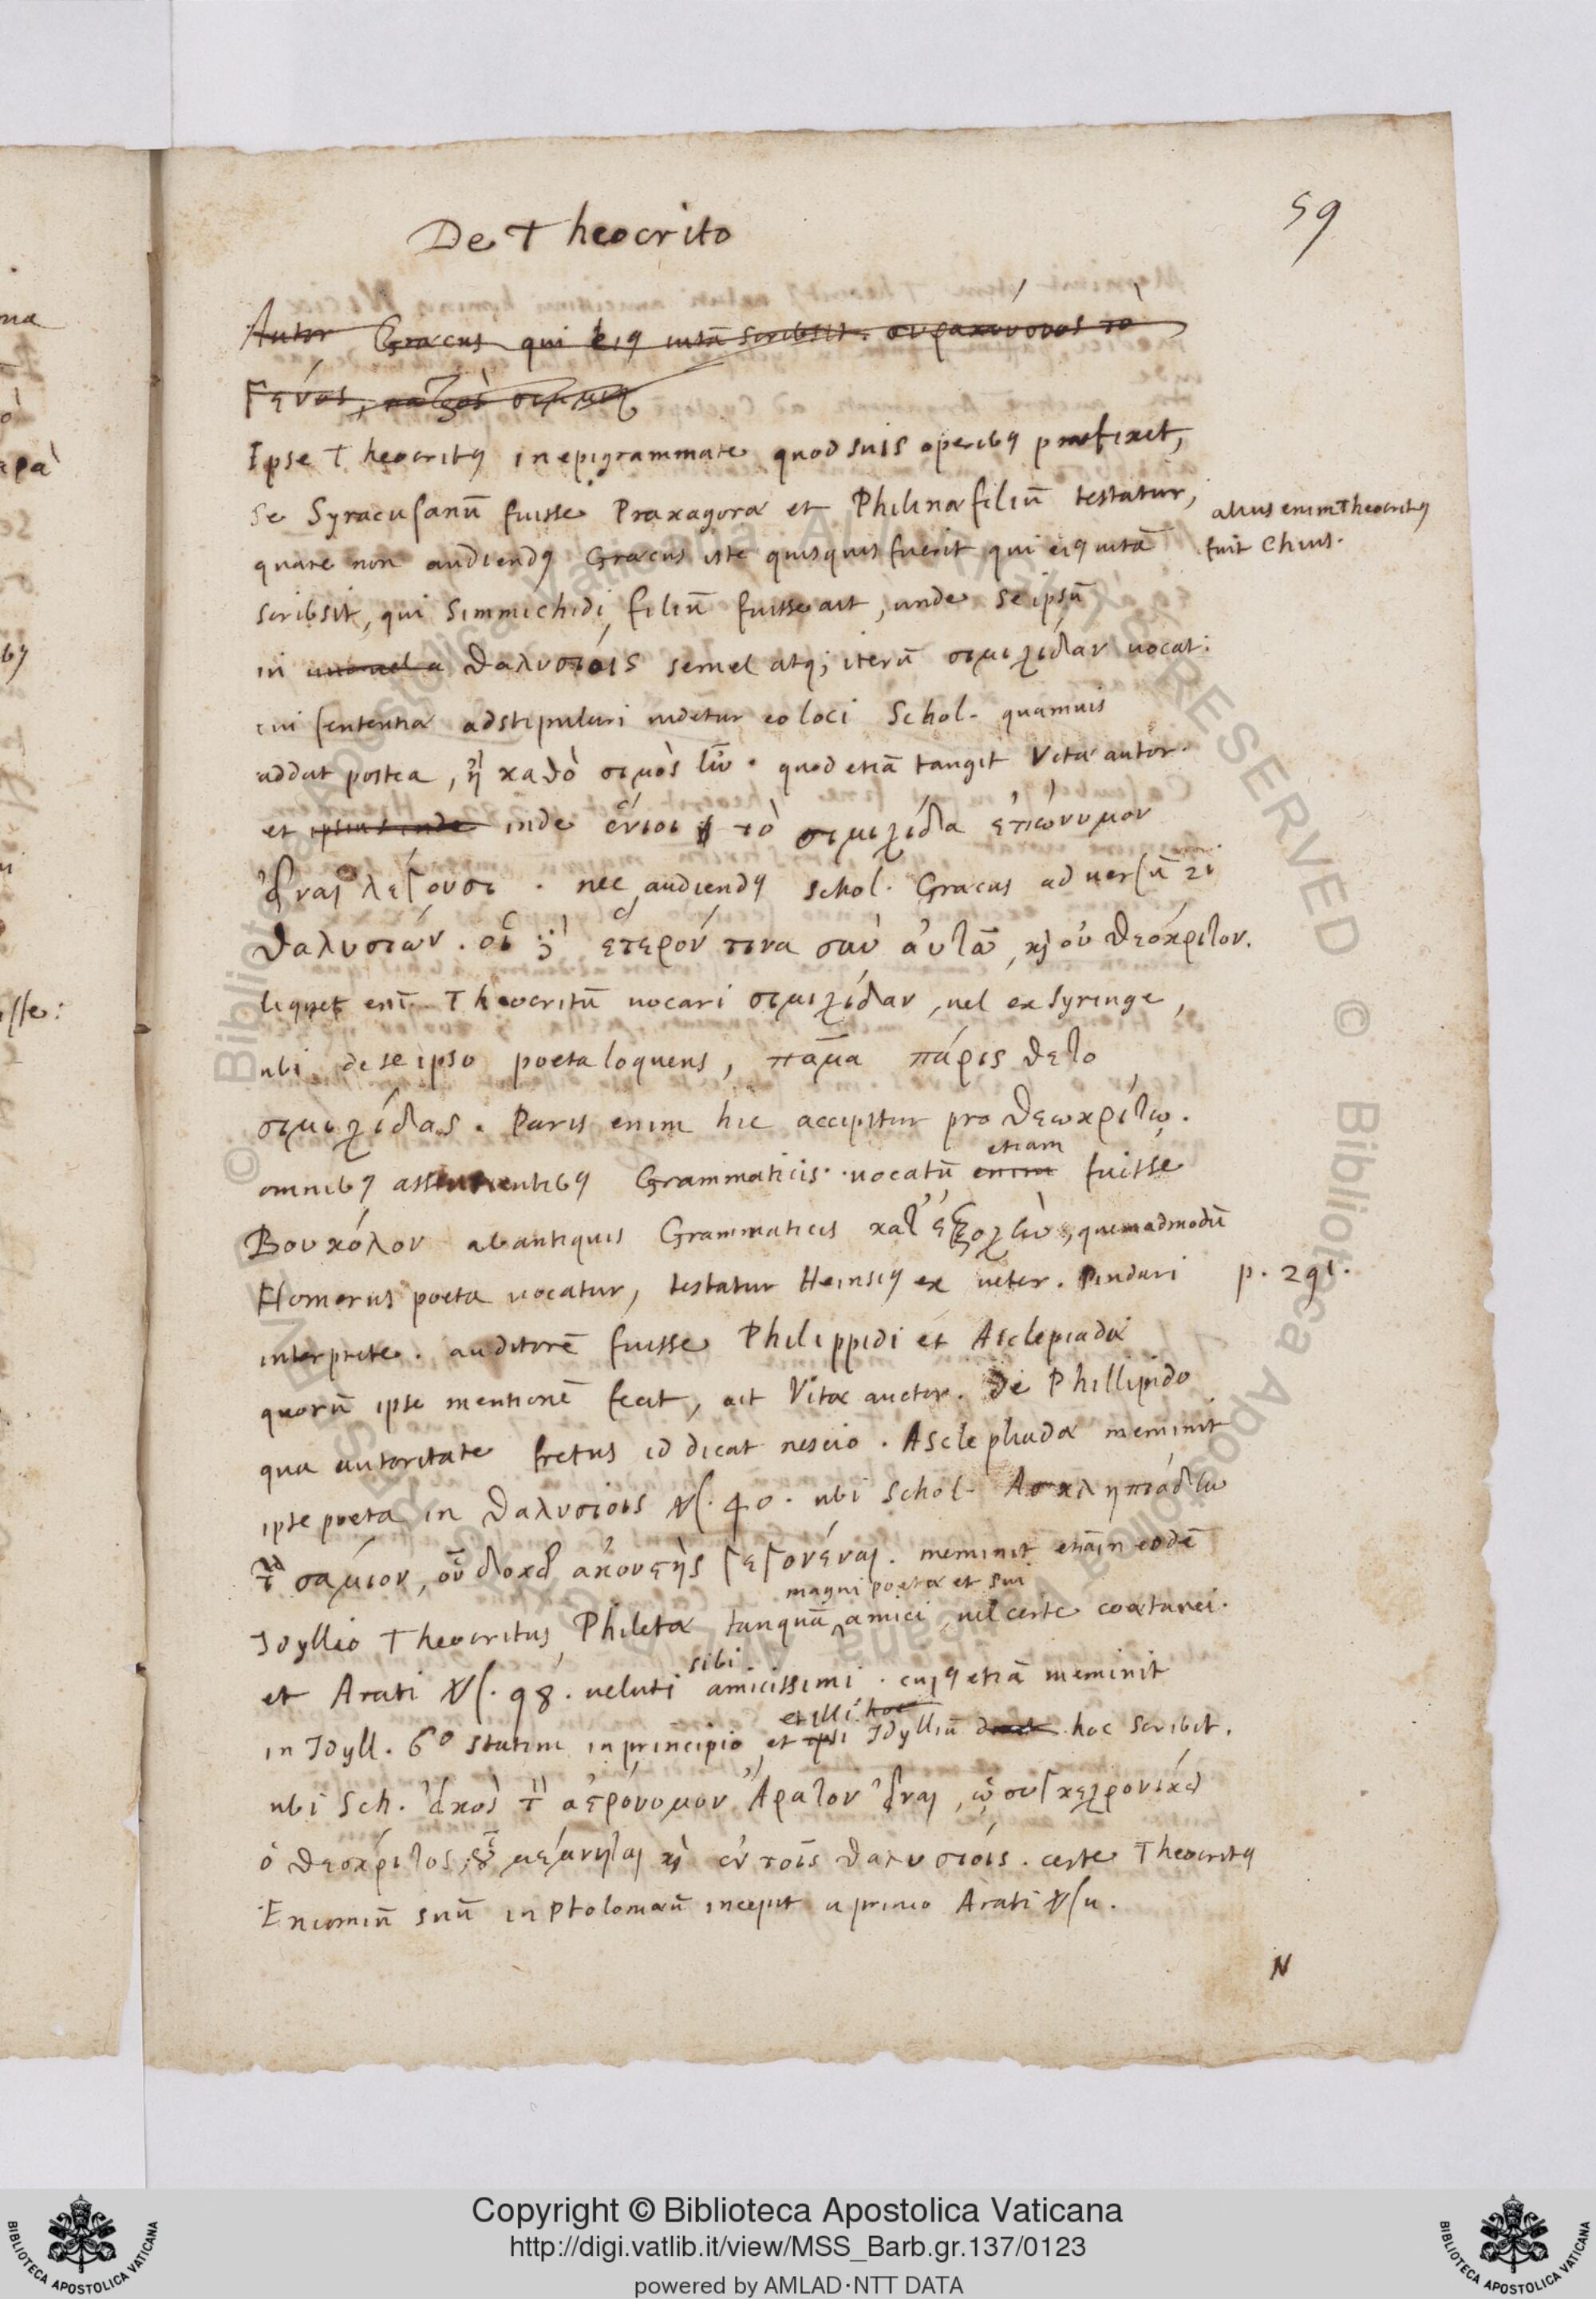 59
De Theocrito
Autor Græcus qui eiꝰ uitã scribsit. συρακούσιος τὸ
γένος,
Ipse Theocritꝰ in epigrammate quod suis operibꝰ præfixit,
se Syracusanũ fuisse Praxagoræ et Philinæ filiũ testatur,
alius enim Theocritꝰ
fuit Chius.
quare non audiendꝰ Græcus iste quisquis fuerit qui eiꝰ uitã
scribsit, qui Simmichidi filiũ fuisse ait, unde seipsũ
in θαλυσίοις semel atq; iterũ σιμιχίδαν uocat.
cui sententiæ adstipulari uidetur eo loci Schol. quamuis
addat postea, ἢ καθὸ σιμὸς ἦν. quod etiã tangit Vitæ autor.
et ipsius inde inde ἔνιοι τὸ σιμιχίδα ἐπώνυμον
εἶναι λέγουσι. nec audiendꝰ Schol. Græcus ad uersũ 21
θαλυσίων. οἱ δὲ ἕτερόν τινα σὺν αὐτῶ, κὶ οὐ θεόκριτον.
liquet eni͂ Theocritũ uocari σιμιχίδαν, uel ex Syringe,
ubi de se ipso poeta loquens, πᾶμα πάρις θέτο
σιμιχίδας. Paris enim hic accipitur pro θεωκρίτῳ.
omnibꝰ assentientibꝰ Grammaticis. uocatũ enim etiam fuisse
Βουκόλον ab antiquis Grammaticis κατ' ἐξοχὴν, quemadmodũ
Homerus poeta uocatur, testatur Heinsiꝰ ex ueter. Pindari
p. 291.
interprete. auditorẽ fuisse Philippidi et Asclepiadæ
quorũ ipse mentionẽ fecit, ait Vitæ auctor. De Phillipido
qua autoritate fretus id dicat nescio. Asclephiadæ meminit
ipse poeta in θαλυσίοις Vs. 40. ubi Schol. Ασκληπιάδην
τὸν σάμιον, οὗ δοκεῖ ἀκουστὴς γεγονέναι. meminit etiã in eodẽ
Idyllio Theocritus, Philetæ tanquã magni poetæ et sui amici, uel certe coætanei.
et Arati Vs. 98. ueluti sibi amicissimi. cuiꝰ etiã meminit
in Idyll. 6º statim in principio, et ipsi et illi hoc Idylliũ hoc scribit.
ubi Sch. εἰκὸς τὸν ἀστρόνομον Ἄρατον εἶναι, ᾧ συγκεχρονίκει
ὁ θεόκριτος, οὗ μέμνηται κὶ ἐν τοῖς θαλυσίοις. certe Theocritꝰ
Encomiũ suũ in Ptolomæũ incepit a primo Arati Vsu.
N
na
ρὰ
bꝰ
isse:
© Biblioteca Apostolica Vaticana ALL RIGHTS RESERVED
Copyright © Biblioteca Apostolica Vaticana
http://digi.vatlib.it/view/MSS_Barb.gr.137/0123
powered by AMLAD·NTT DATA
BIBLIOTECA APOSTOLICA VATICANA
BIBLIOTECA APOSTOLICA VATICANA